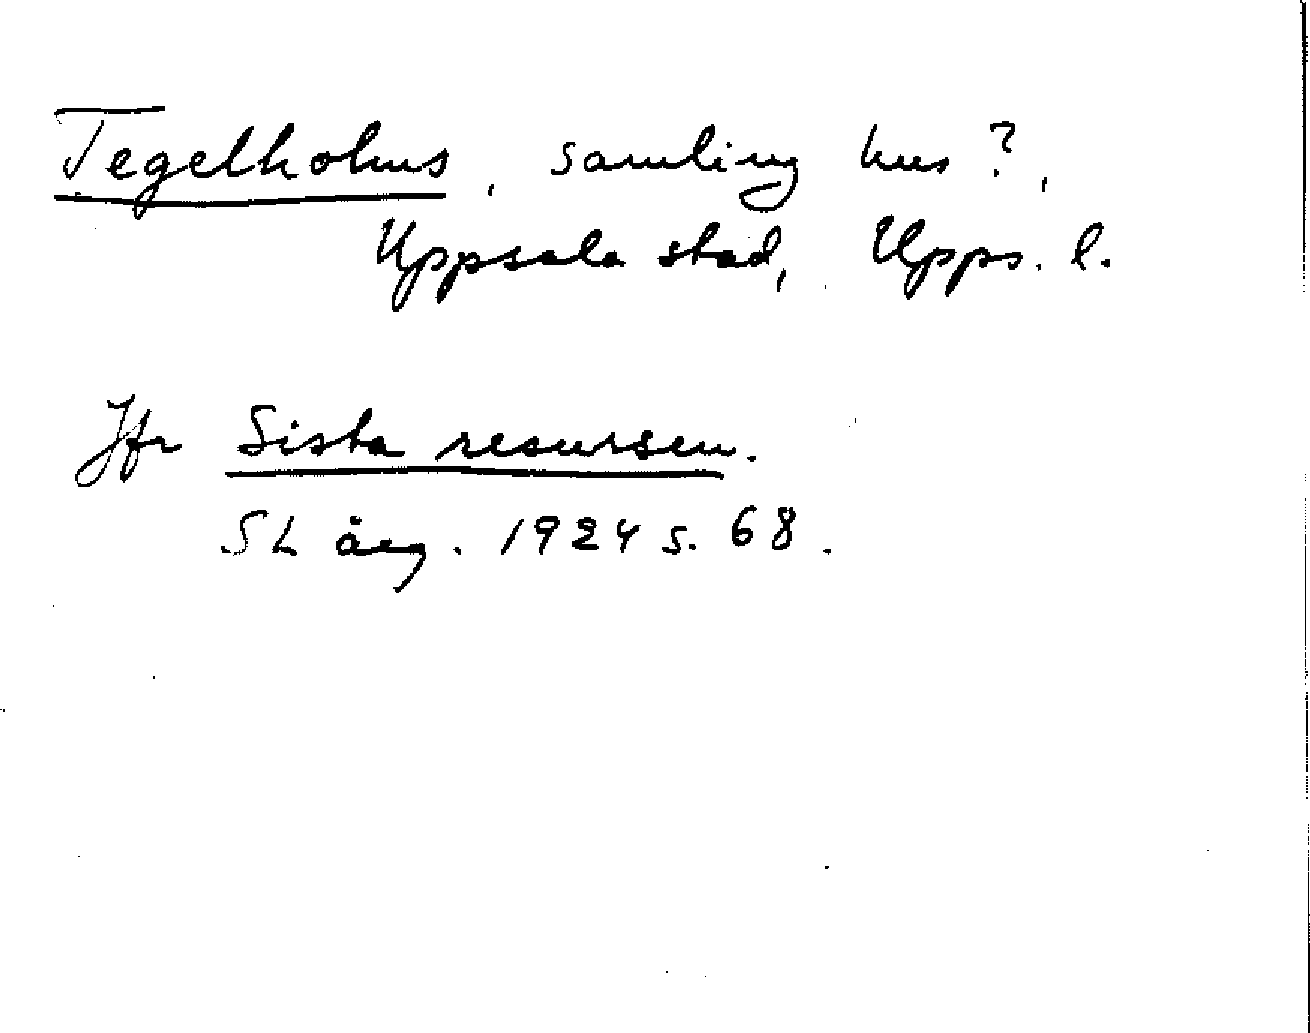 Tegelkolms, samling hus?,
Uppsala stad, Upps. l.
Jfr Sista resursen.
SL årg. 1924 s. 68.